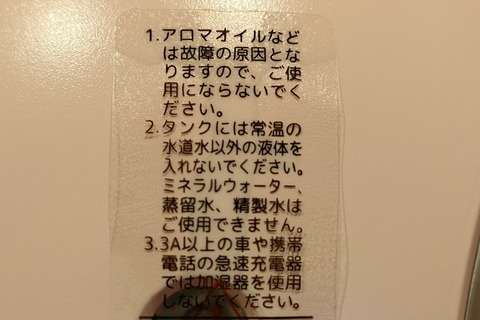 1.アロマオイルなど
は故障の原因とな
りますので、ご使
用にならないでく
ださい。
2.タンクには常温の
水道水以外の液体を
入れないでください。
ミネラルウォーター、
蒸留水、精製水は
ご使用できません。
3.3A以上の車や携帯
電話の急速充電器
では加湿器を使用
しないでください。